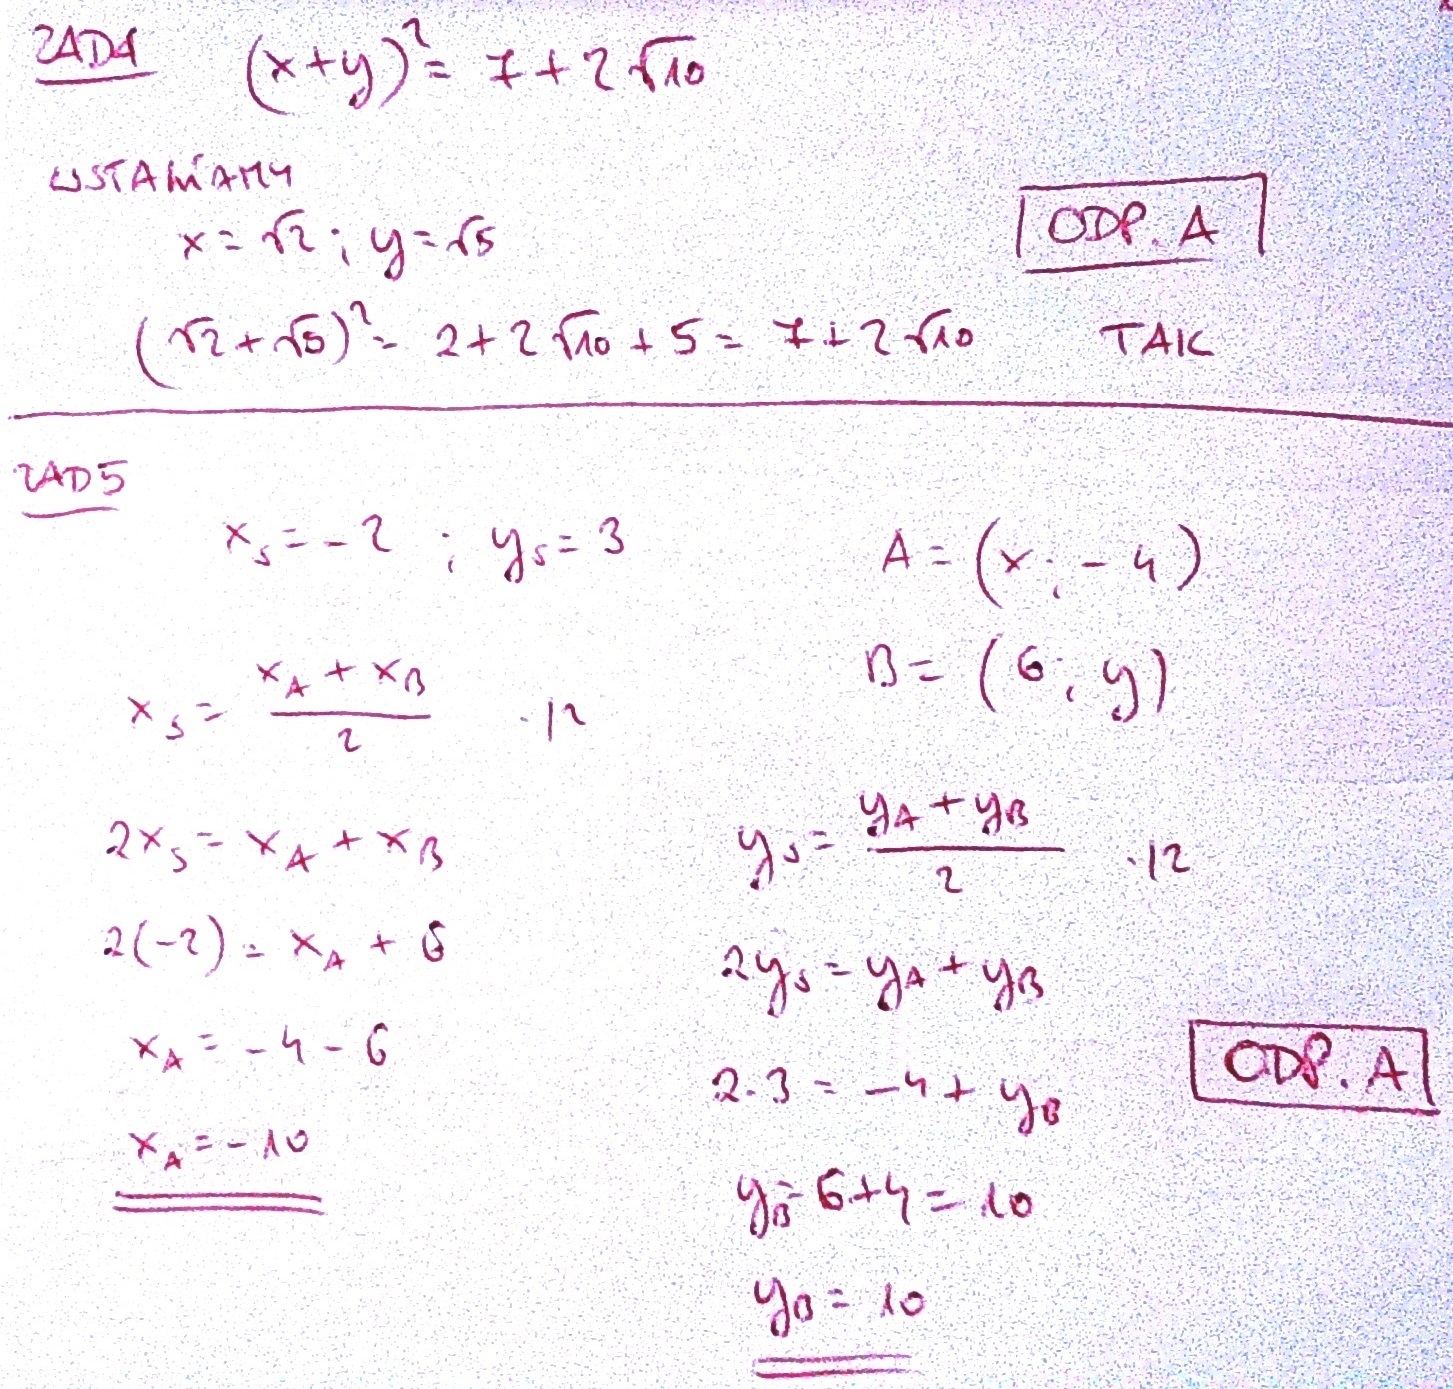 ZAD4 (x+y)² = 7+2√10
WSTAWIAMY
x=√2 ; y=√5
ODP. A
(√2+√5)² = 2+2√10+5 = 7+2√10 TAK
ZAD5
x_s = -2 ; y_s = 3
A = (x ; -4)
B = (6 ; y)
x_s = (x_A + x_B)/2 ·|2
2x_s = x_A + x_B
2(-2) = x_A + 6
x_A = -4-6
x_A = -10
y_s = (y_A + y_B)/2 ·|2
2y_s = y_A + y_B
2·3 = -4 + y_B
y_B = 6+4 = 10
y_B = 10
ODP. A